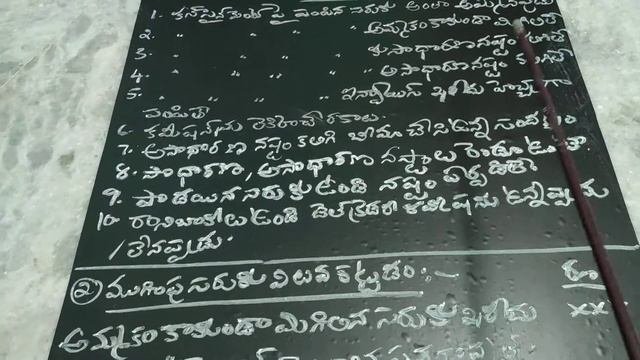 1. కన్సైన్‌మెంట్ పై పంపిన సరుకు అంతా అమ్మినప్పుడు
2. " " " " అమ్మకం కాకుండా మిగిలితే
3. " " " " కు సాధారణ నష్టం
4. " " " " అసాధారణ నష్టం
5. " " " " ఇన్వాయిస్ ఖరీదు
పంపితే
6. కమీషన్‌ను లెక్కించే రకాలు.
7. అసాధారణ నష్టం కలిగి బీమా చేసి ఉన్న సందర్భం
8. సాధారణ, అసాధారణ నష్టాలు రెండూ ఉంటే
9. పాడయిన సరుకు ఉండి నష్టం ఏర్పడితే
10. రానిబాకీలు ఉండి డెల్‌క్రెడరీ కమీషను ఉన్నప్పుడు
/ లేనప్పుడు.
② ముగింపు సరుకు విలువ కట్టడం :- రూ
అమ్మకం కాకుండా మిగిలిన సరుకు ఖరీదు xx